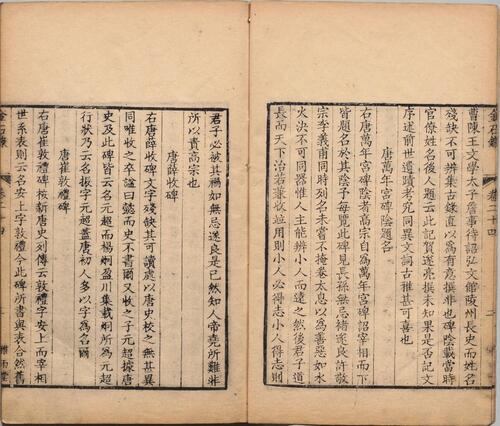 曹陳王文學太子詹事待詔弘文館陵州長史而姓名
殘缺不可辨集古錄直以為有意撰非也碑陰載當時
官僚姓名後人題云此記賀遂亮撰未知果是否記文
序述前世遺蹟考究同異文詞古雅甚可喜也
唐萬年宮碑陰題名
右唐萬年宮碑陰考高宗自為萬年宮碑詔宰相而下
皆題名於其陰予每覽此碑見長孫無忌褚遂良許敬
宗李義甫同時列名未嘗不掩卷太息以為善惡如水
火決不可同器惟人主能辨小人而遠之然後君子道
長而天下治若兼收並用則小人必得志小人得志則
君子必被其禍如無忌遂良是已然知人帝堯所難非
所以責高宗也
唐薛收碑
右唐薛收碑文字殘缺其可讀處以唐史校之無甚異
同唯收之卒諡曰懿而史不書爾又收之子元超據唐
史及此碑皆云名元超而楊炯盈川集載炯所為元超
行狀乃云名振字元超蓋唐初人多以字為名爾
唐崔敦禮碑
右唐崔敦禮碑按新唐史列傳云敦禮字安上而宰相
世系表則云名安上字敦禮今此碑所書與表合然舊
金石錄
卷二十四
二
雅雨堂